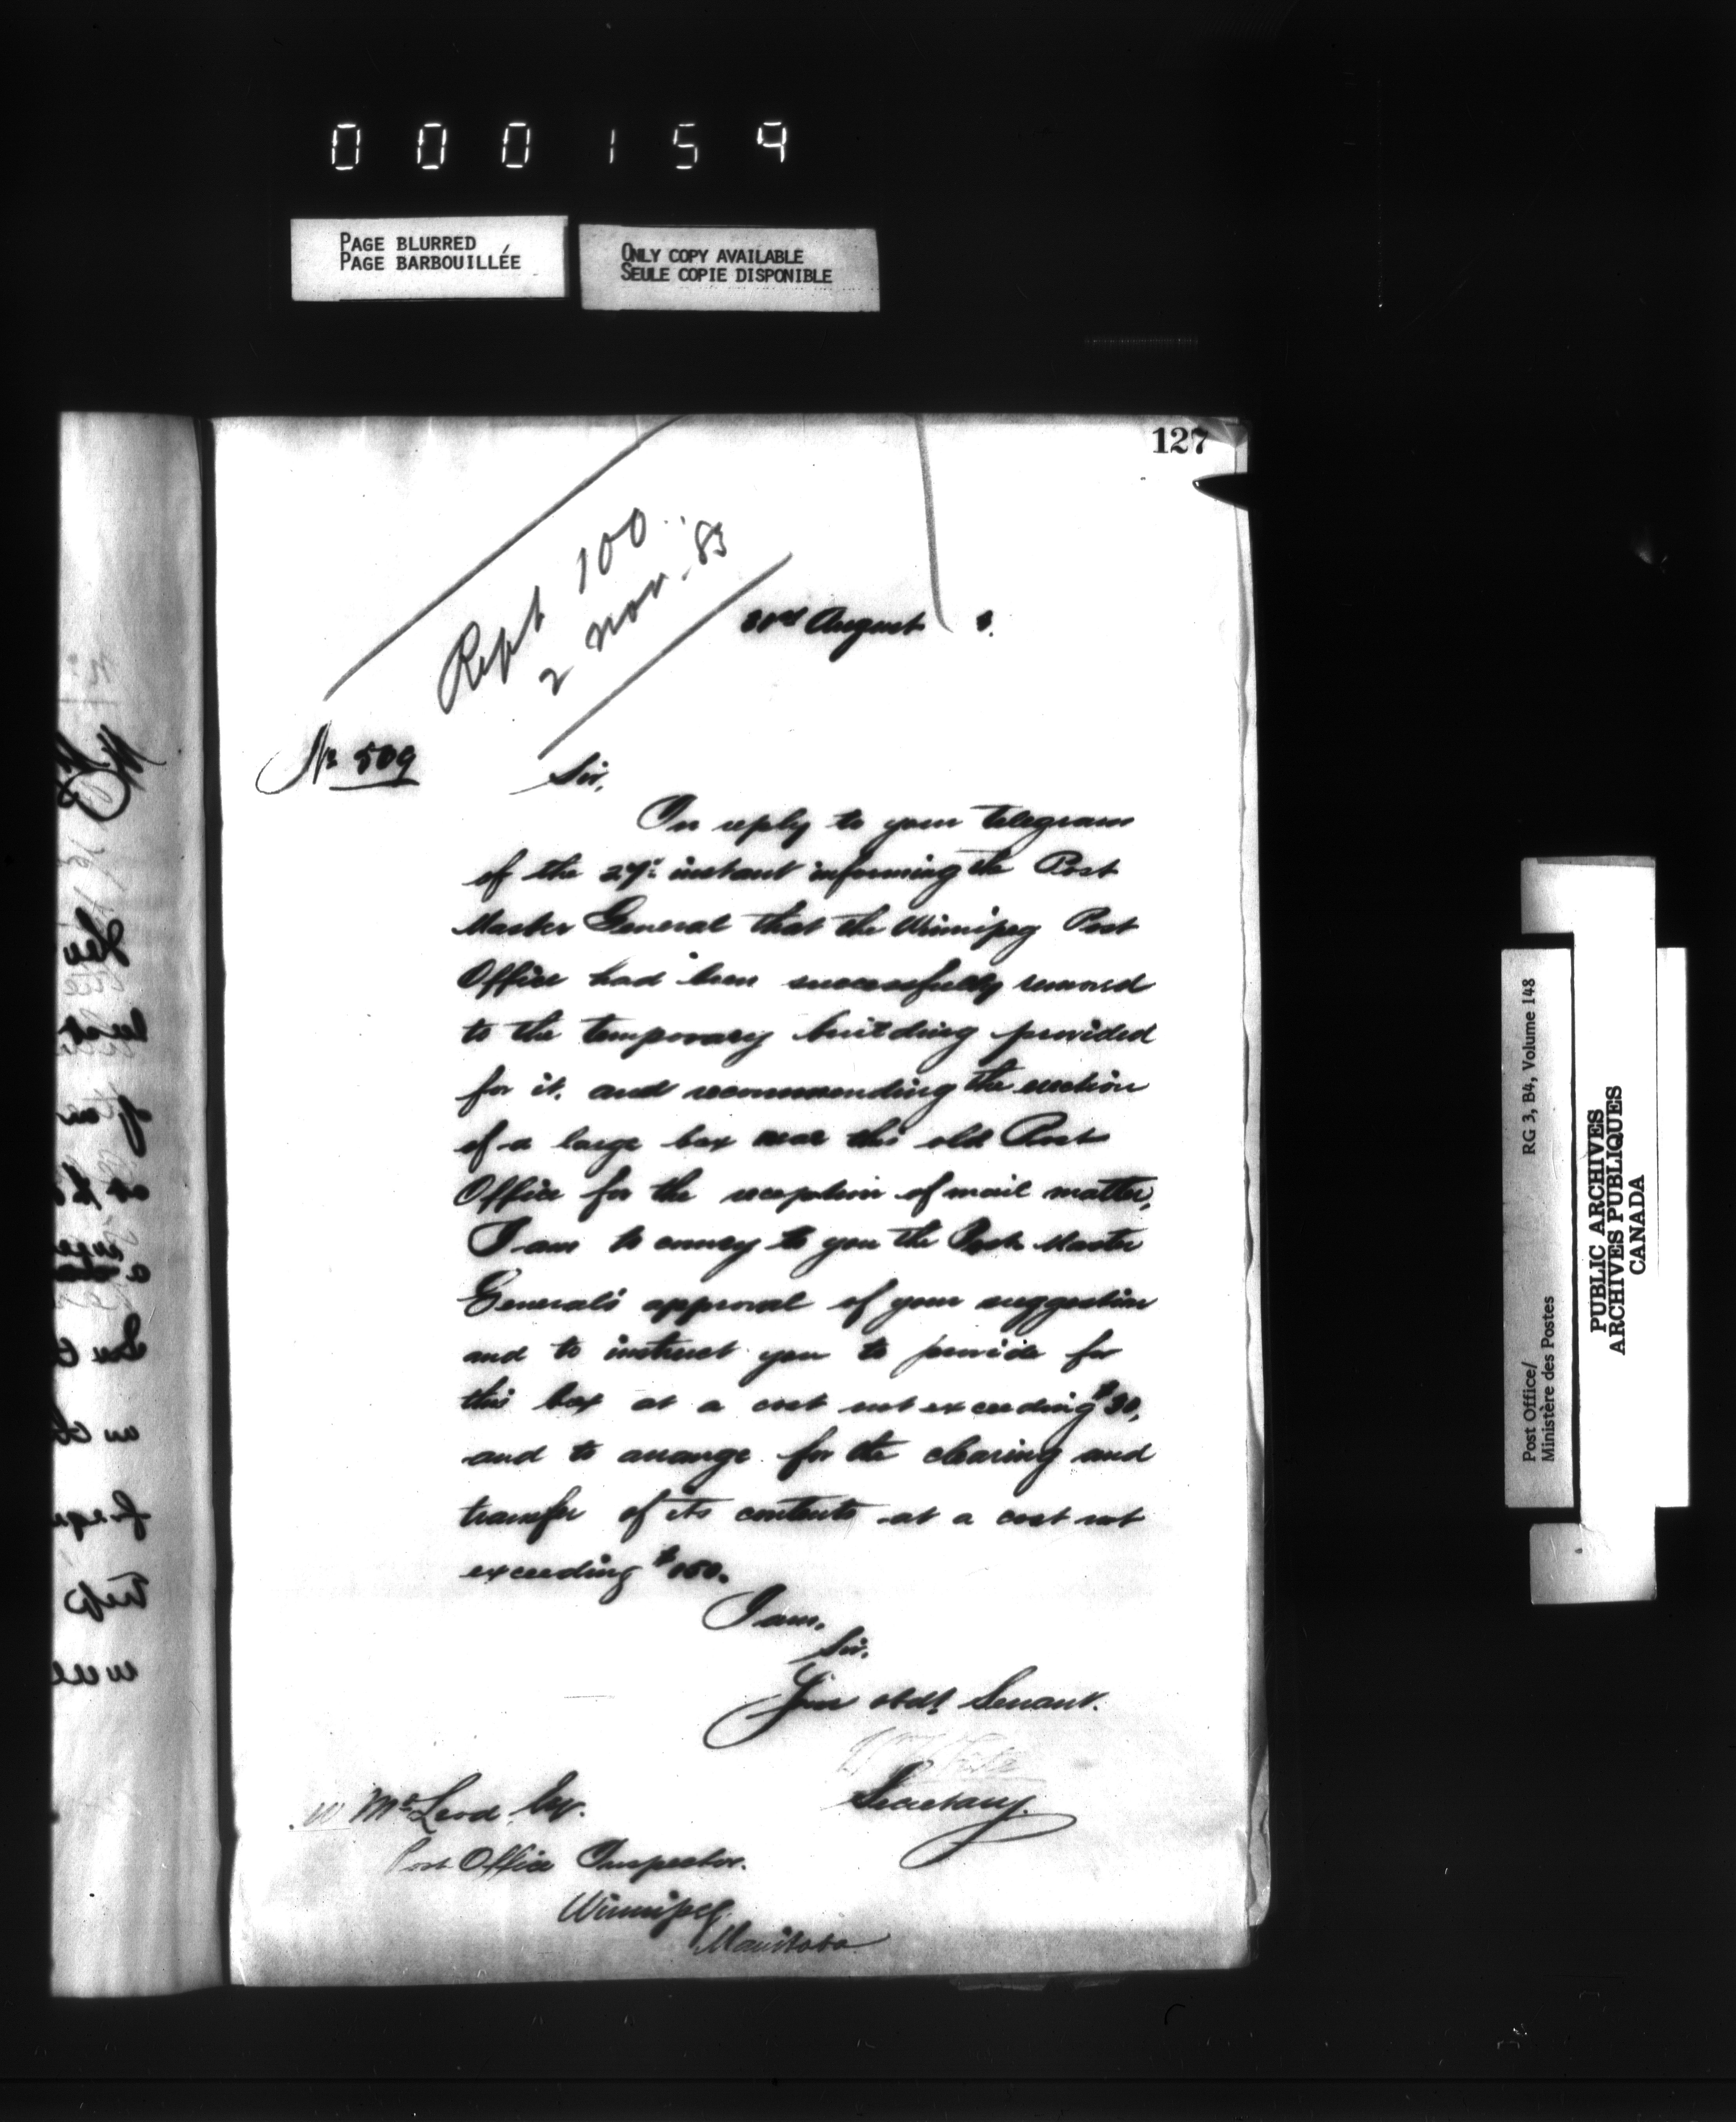 000159
PAGE BLURRED
PAGE BARBOUILLÉE
ONLY COPY AVAILABLE
SEULE COPIE DISPONIBLE
127
Rept 100
2 Nov. 83
August 3.
No 509
Sir,
In reply to your telegram
of the 27th instant informing the Post
Master General that the Winnipeg Post
Office had been successfully removed
to the temporary building provided
for it, and recommending the erection
of a large box near the old Post
Office for the reception of mail matter,
I am to convey to you the Post Master
General's approval of your suggestion
and to instruct you to provide for
this box at a cost not exceeding $30,
and to arrange for the clearing and
transfer of its contents at a cost not
exceeding $150.
I am,
Sir,
Your obdt Servant.
Secretary.
W McLeod, Esq.
Post Office Inspector.
Winnipeg
Manitoba
Post Office/
Ministère des Postes
RG 3, B4, Volume 148
PUBLIC ARCHIVES
ARCHIVES PUBLIQUES
CANADA